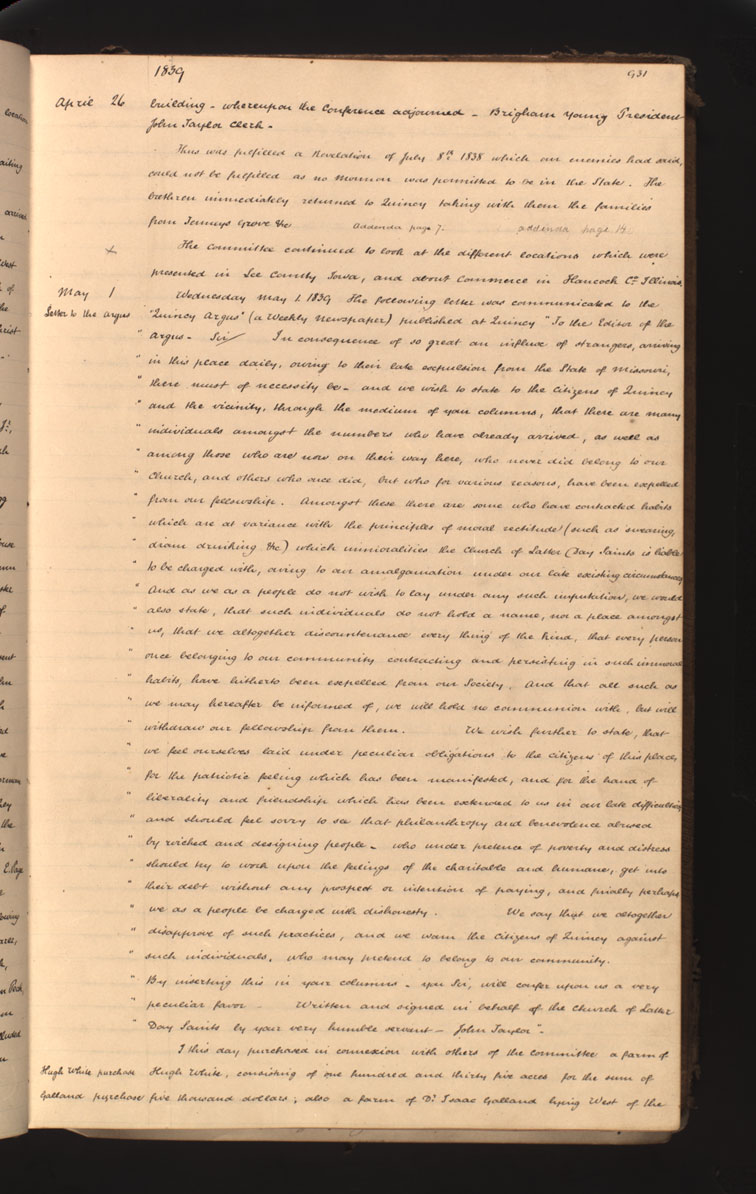 1839
931
April 26 building – whereupon the Conference adjourned – Brigham Young President
John Taylor Clerk –
Thus was fulfilled a Revelation of July 8th. 1838 which our enemies had said,
could not be fulfilled as no Mormon was permitted to be in the State. The
brethren immediately returned to Quincy taking with them the families
from Tenneys Grove &c addenda page 7. addenda page
+ The committee continued to look at the different locations which were
presented in Lee County Iowa, and about Commerce in Hancock Co. Illinois,
May 1 Wednesday May 1. 1839 The following letter was communicated to the
Letter to the argus "Quincy Argus" (a Weekly Newspaper) published at Quincy "To the Editor of the
" Argus – Sir In consequence of so great an influx of strangers, arriving
" in this place daily, owing to their late expulsion from the State of Missouri,
" there must of necessity be – and we wish to state to the citizens of Quincy
" and the vicinity, through the medium of your columns, that there are many
" individuals amongst the numbers who have already arrived, as well as
" among those who are now on their way here, who never did belong to our
" Church, and others who once did, but who for various reasons, have been expelled
" from our fellowship. Amongst these there are some who have contracted habits
" which are at variance with the principles of moral rectitude (such as swearing,
" dram drinking &c) which immoralities the Church of Latter Day Saints is liable
" to be charged with, owing to our amalgamation under our late existing circumstances
" And as we as a people do not wish to lay under any such imputation, we would
" also state, that such individuals do not hold a name, nor a place amongst
" us, that we altogether discountenance every thing of the kind, that every person
" once belonging to our community contracting and persisting in such immoral
" habits, have hitherto been expelled from our Society. And that all such as
" we may hereafter be informed of, we will hold no communion with, but will
" withdraw our fellowship from them. We wish further to state, that
" we feel ourselves laid under peculiar obligations to the citizens of this place,
" for the patriotic feeling which has been manifested, and for the hand of
" liberality and friendship which has been extended to us in our late difficulties
" and should feel sorry to see that philanthropy and benevolence abused
" by wicked and designing people – who under pretence of poverty and distress
" should try to work upon the feelings of the charitable and humane, get into
" their debt without any prospect or intention of paying, and finally perhaps
" we as a people be charged with dishonesty. We say that we altogether
" disapprove of such practices, and we warn the Citizens of Quincy against
" such individuals, who may pretend to belong to our community.
" By inserting this in your columns – you Sir, will confer upon us a very
" peculiar favor – Written and signed in behalf of the Church of Latter
" Day Saints by your very humble servant – John Taylor" –
I this day purchased in connexion with others of the Committee a farm of
Hugh White purchase Hugh White, consisting of one hundred and thirty five acres for the sum of
Galland purchase five thousand dollars; also a farm of Dr. Isaac Galland lying West of the